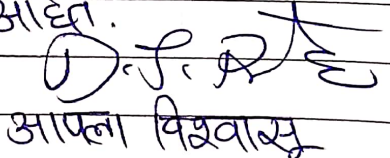 आहेत.
आपला विश्वासू